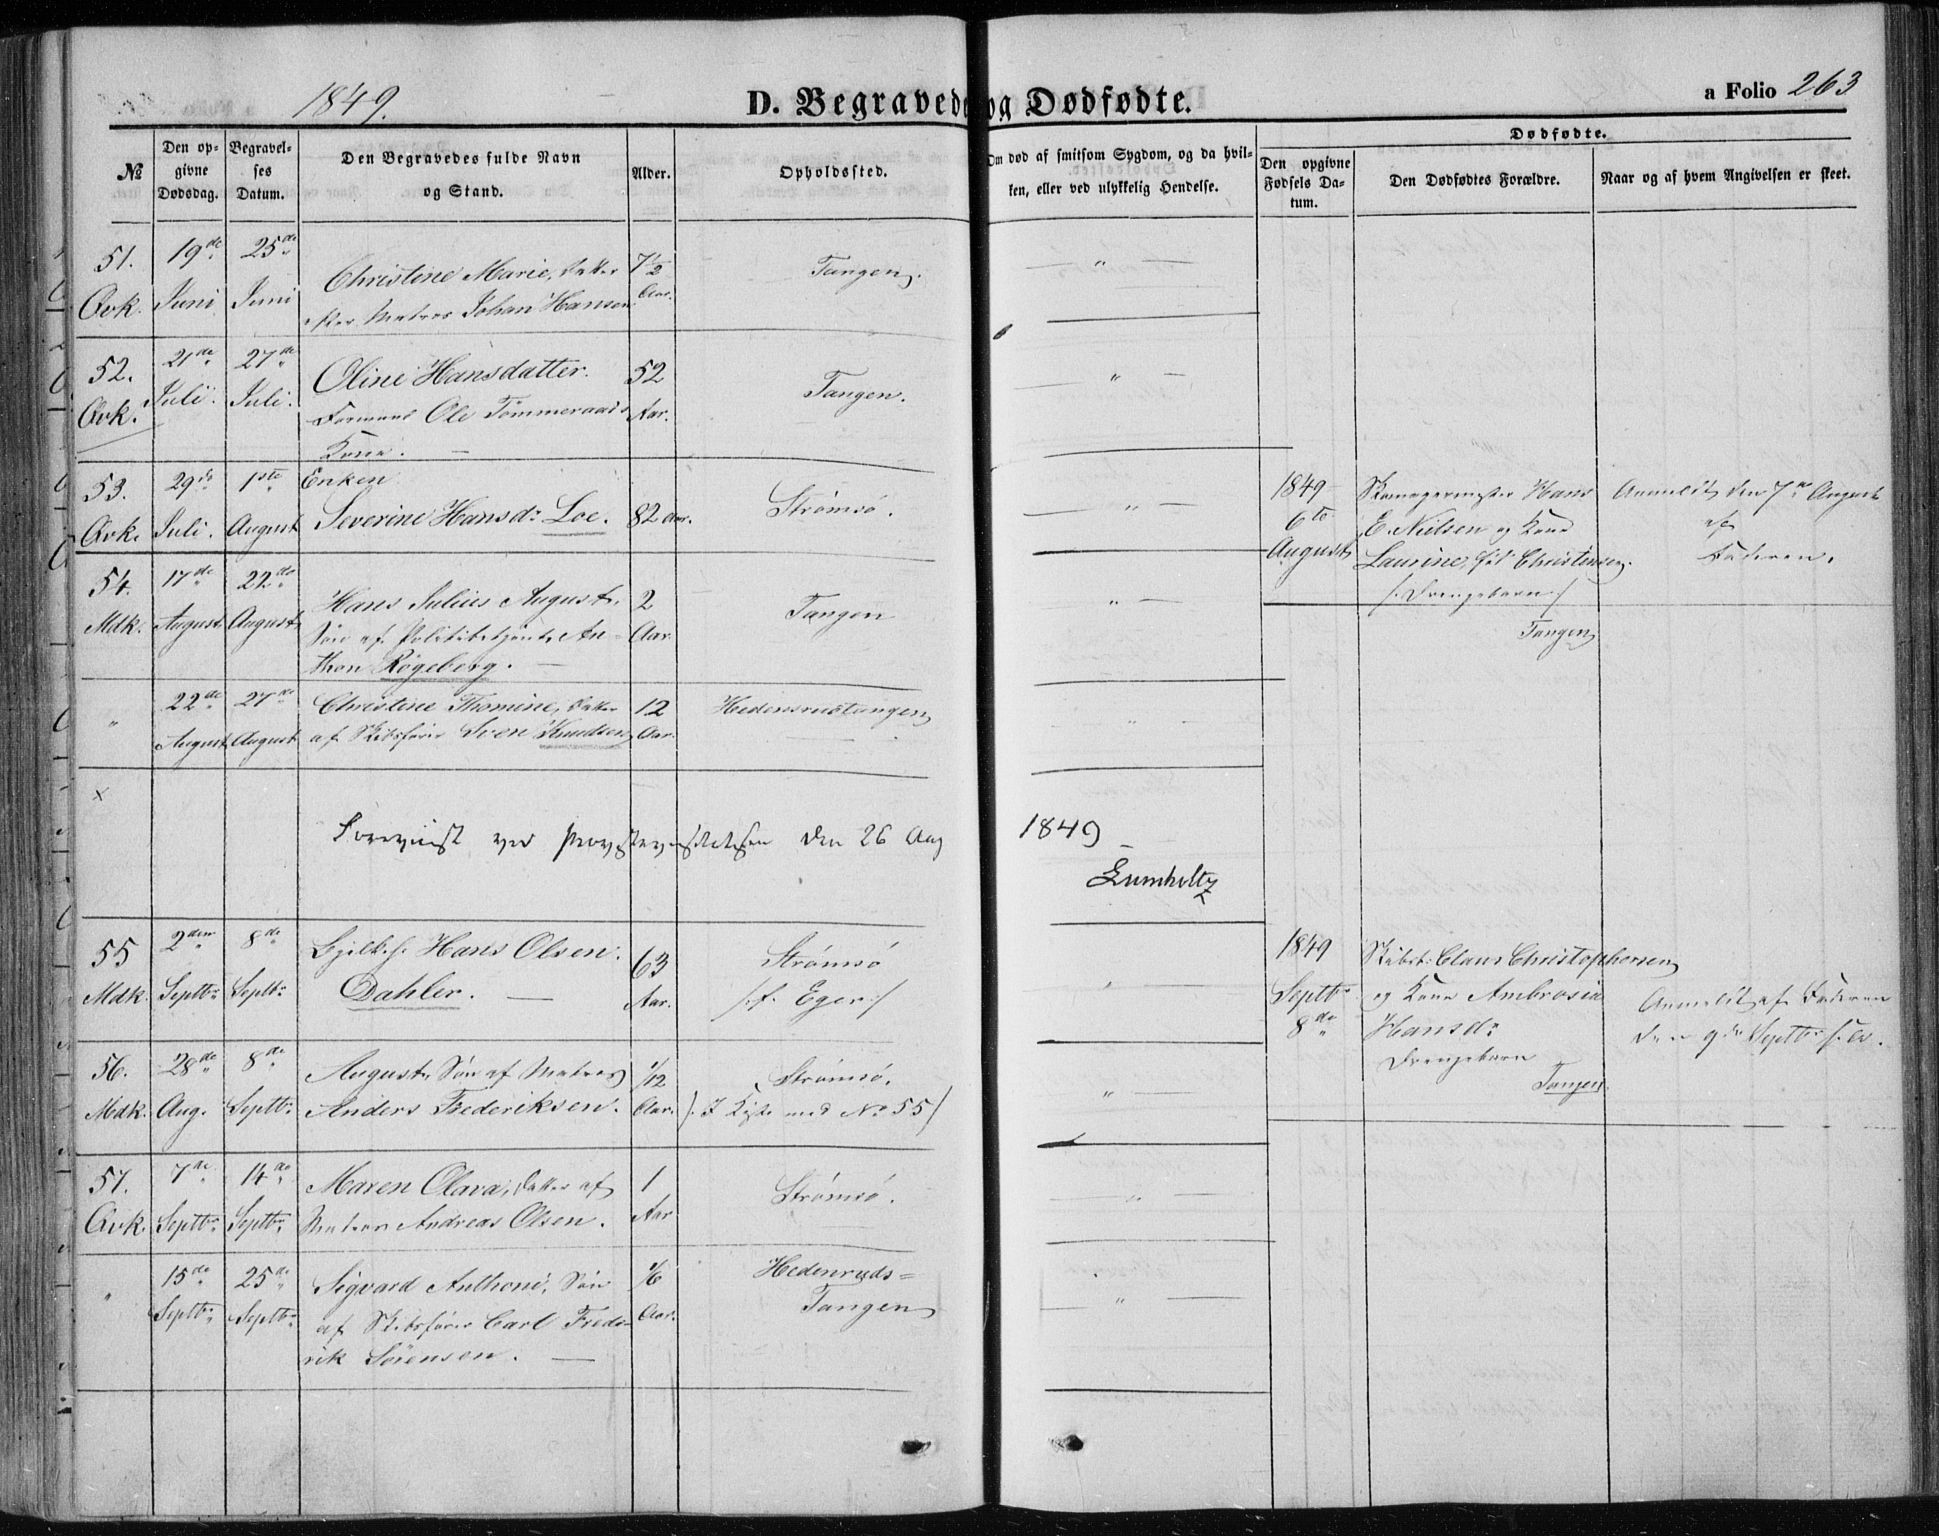 1849.
D. Begravede og Dødfødte.
a Folio 263
№
Den opgivne Dødsdag.
Begravelses Datum.
Den Begravedes fulde Navn og Stand.
Alder.
Opholdssted.
Om død af smitsom Sygdom, og da hvilken, eller ved ulykkelig Hendelse.
Dødfødte.
Den opgivne Fødsels Datum.
Den Dødfødtes Forældre.
Naar og af hvem Angivelsen er skeet.
51. 19de 25de
Qvk. Juni Juni
Christine Marie, Datter 7½ Tangen. "
Matros Johan Hansen. Aar.
52. 21de 27de Oline Hansdatter. 52 Tangen. "
Qvk. Juli. Juli. Ole Tømmeraads Aar.
Kone.
53. 29de 1ste Enken
Qvk. Juli. August Severine Hansd: Loe. 82 Aar. Strømsø. "
1849 Skomagermester Hans Anmeldt den 7de August
6te E. Nielsen og Kone af
August Laurine, fød Christensen. Faderen.
/: Drengebarn :/
Tangen
54. 17de 22de Hans Julius August, 2 Tangen "
Mdk. August August Søn af Politibetjent An- Aar.
thon Røgeberg.
" 22de 27de Christine Thomine, Datter 12 Hedensrustangen "
August August af Skibsfører Sven Knudsen Aar.
x
Foreviist ved den 26 Aug 1849
Lumholtz
55 2den 8de Hans Olsen 63 Strømsø "
Mdk. Septbr Septbr Dahler. Aar. /: f. Eger :/
1849 Claus Christophersen
Septbr og Kone Ambrosia Anmeldt af Faderen
8de Hansdr den 9de Septbr
Drengebarn
Tangen
56. 28de 8de August, Søn af Matros 1/12 Strømsø. "
Mdk. Aug. Septbr Anders Frederiksen. Aar. /: I Kiste med No 55 /
57. 7de 14de Maren Olava, Datter af 1 Strømsø. "
Qvk. Septbr Septbr Matros Andreas Olsen. Aar
" 15de 25de Sigvard Anthoni, Søn 1/6 Hedenruds= "
Septbr Septbr af Skibsfører Carl Frede- Aar. Tangen
rik Sørensen.